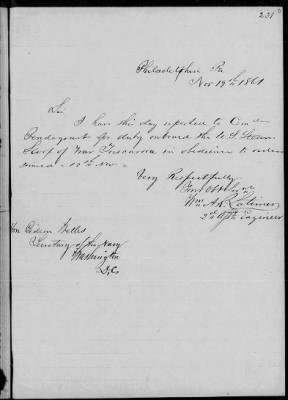 231
Philadelphia Pa
Nov 19th 1861
Sir
I have this day reported to Comdre
Pendergrast for duty onboard the U.S. Steam
Sloop of War Tuscarora in obedience to orders
Very Respectfully
Your Obt Svt
Wm A.R. Latimer
2nd Asst Engineer
Hon Gideon Welles
Secretary of the Navy
Washington
D,C,